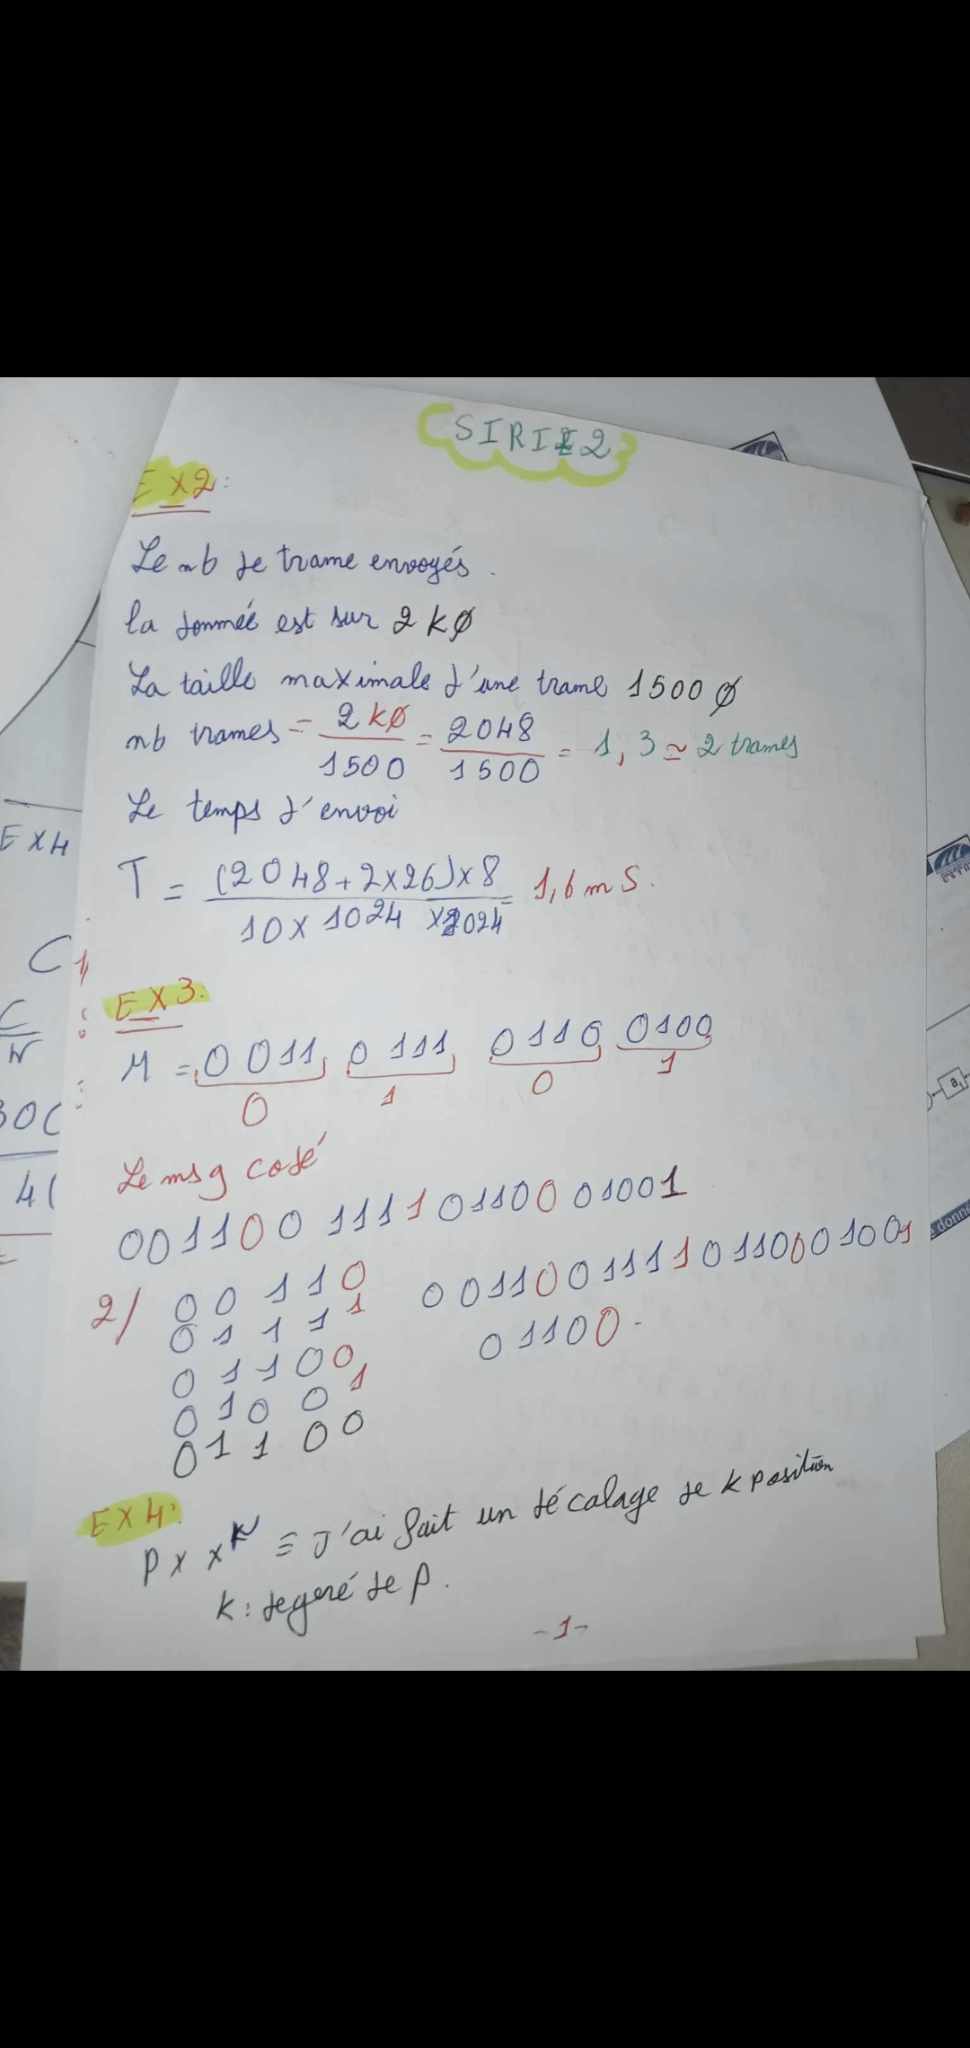 SIRIE2
EX2:
Le nb de trame envoyés.
la donnée est sur 2 kØ
La taille maximale d'une trame 1500 Ø
nb trames = 2 kØ / 1500 = 2048 / 1500 = 1,3 ≃ 2 trames
Le temps d'envoi
T = (2048+2x26)x8 / 10x1024 x1024 = 1,6mS.
EX3:
M = 0011 0111 0110 0100
0 1 0 1
Le msg codé
00110 01111 01100 01001
2/ 00110
01111
01100
01001
01100
00110011110110001001
01100.
EX4:
P x x^k = J'ai fait un décalage de k position
k: degeré de P.
-1-
EX4
C
C
N
30C
4(
donné
a1